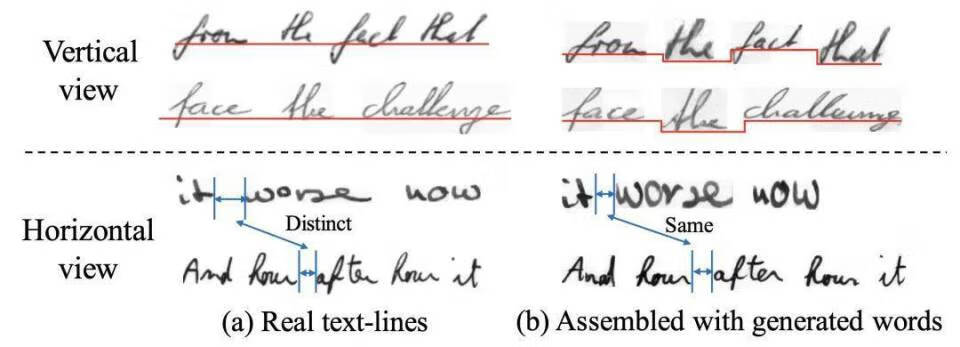 Vertical view
from the fact that
face the challenge
from the fact that
face the challenge
Horizontal view
it worse now
Distinct
And hour after hour it
it worse now
Same
And hour after hour it
(a) Real text-lines
(b) Assembled with generated words